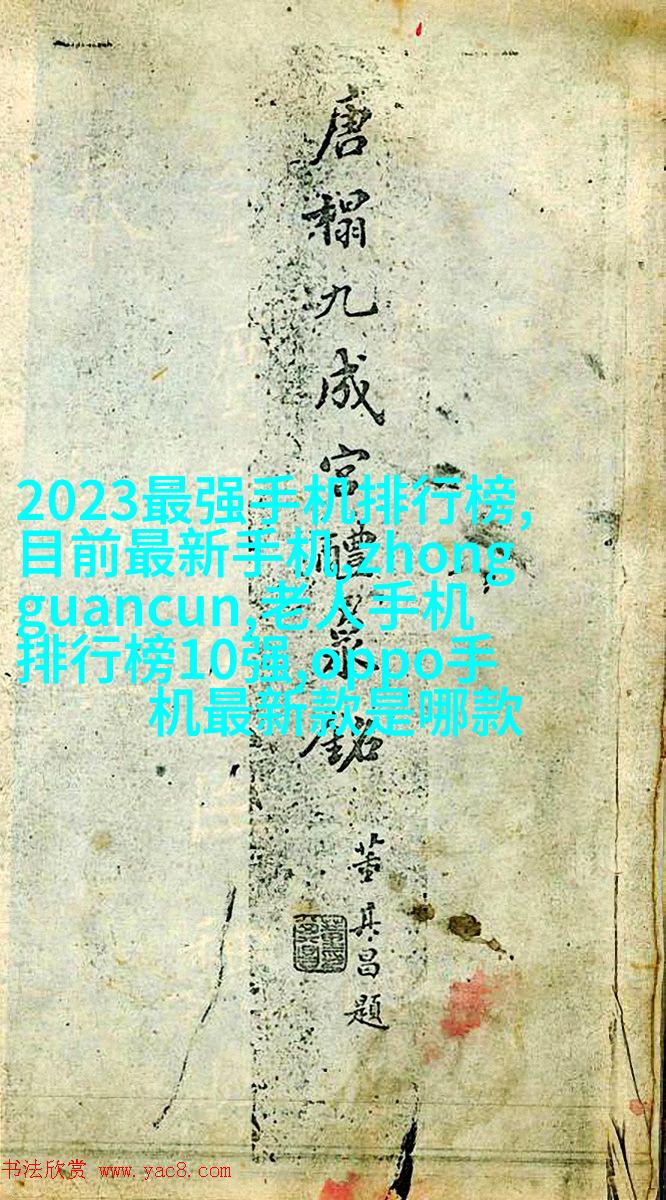 唐榻九成宮醴泉銘
董其昌題
2023最强手机排行榜,
目前最新手机,zhong
guancun,老人手机
排行榜10强,oppo手
机最新款是哪款
书法欣赏 www.yac8.com